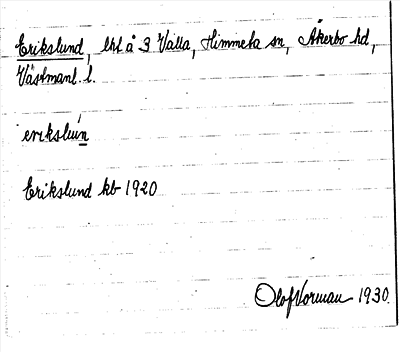 Erikslund, lht å 3 Valla, Himmeta sn, Åkerbo hd,
Västmanl. l.
erikslun
Erikslund kb 1920
Olof Norman 1930.